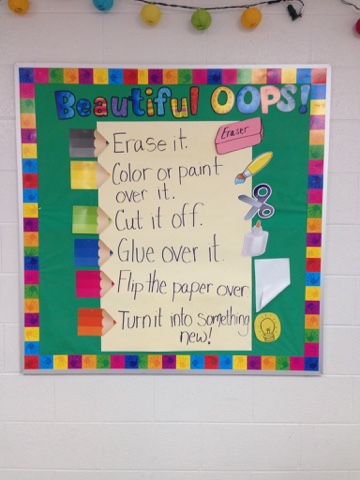 Beautiful OOPS!
Erase it.
Eraser
Color or paint
over it.
Cut it off.
Glue over it.
Flip the paper over
Turn it into something
new!